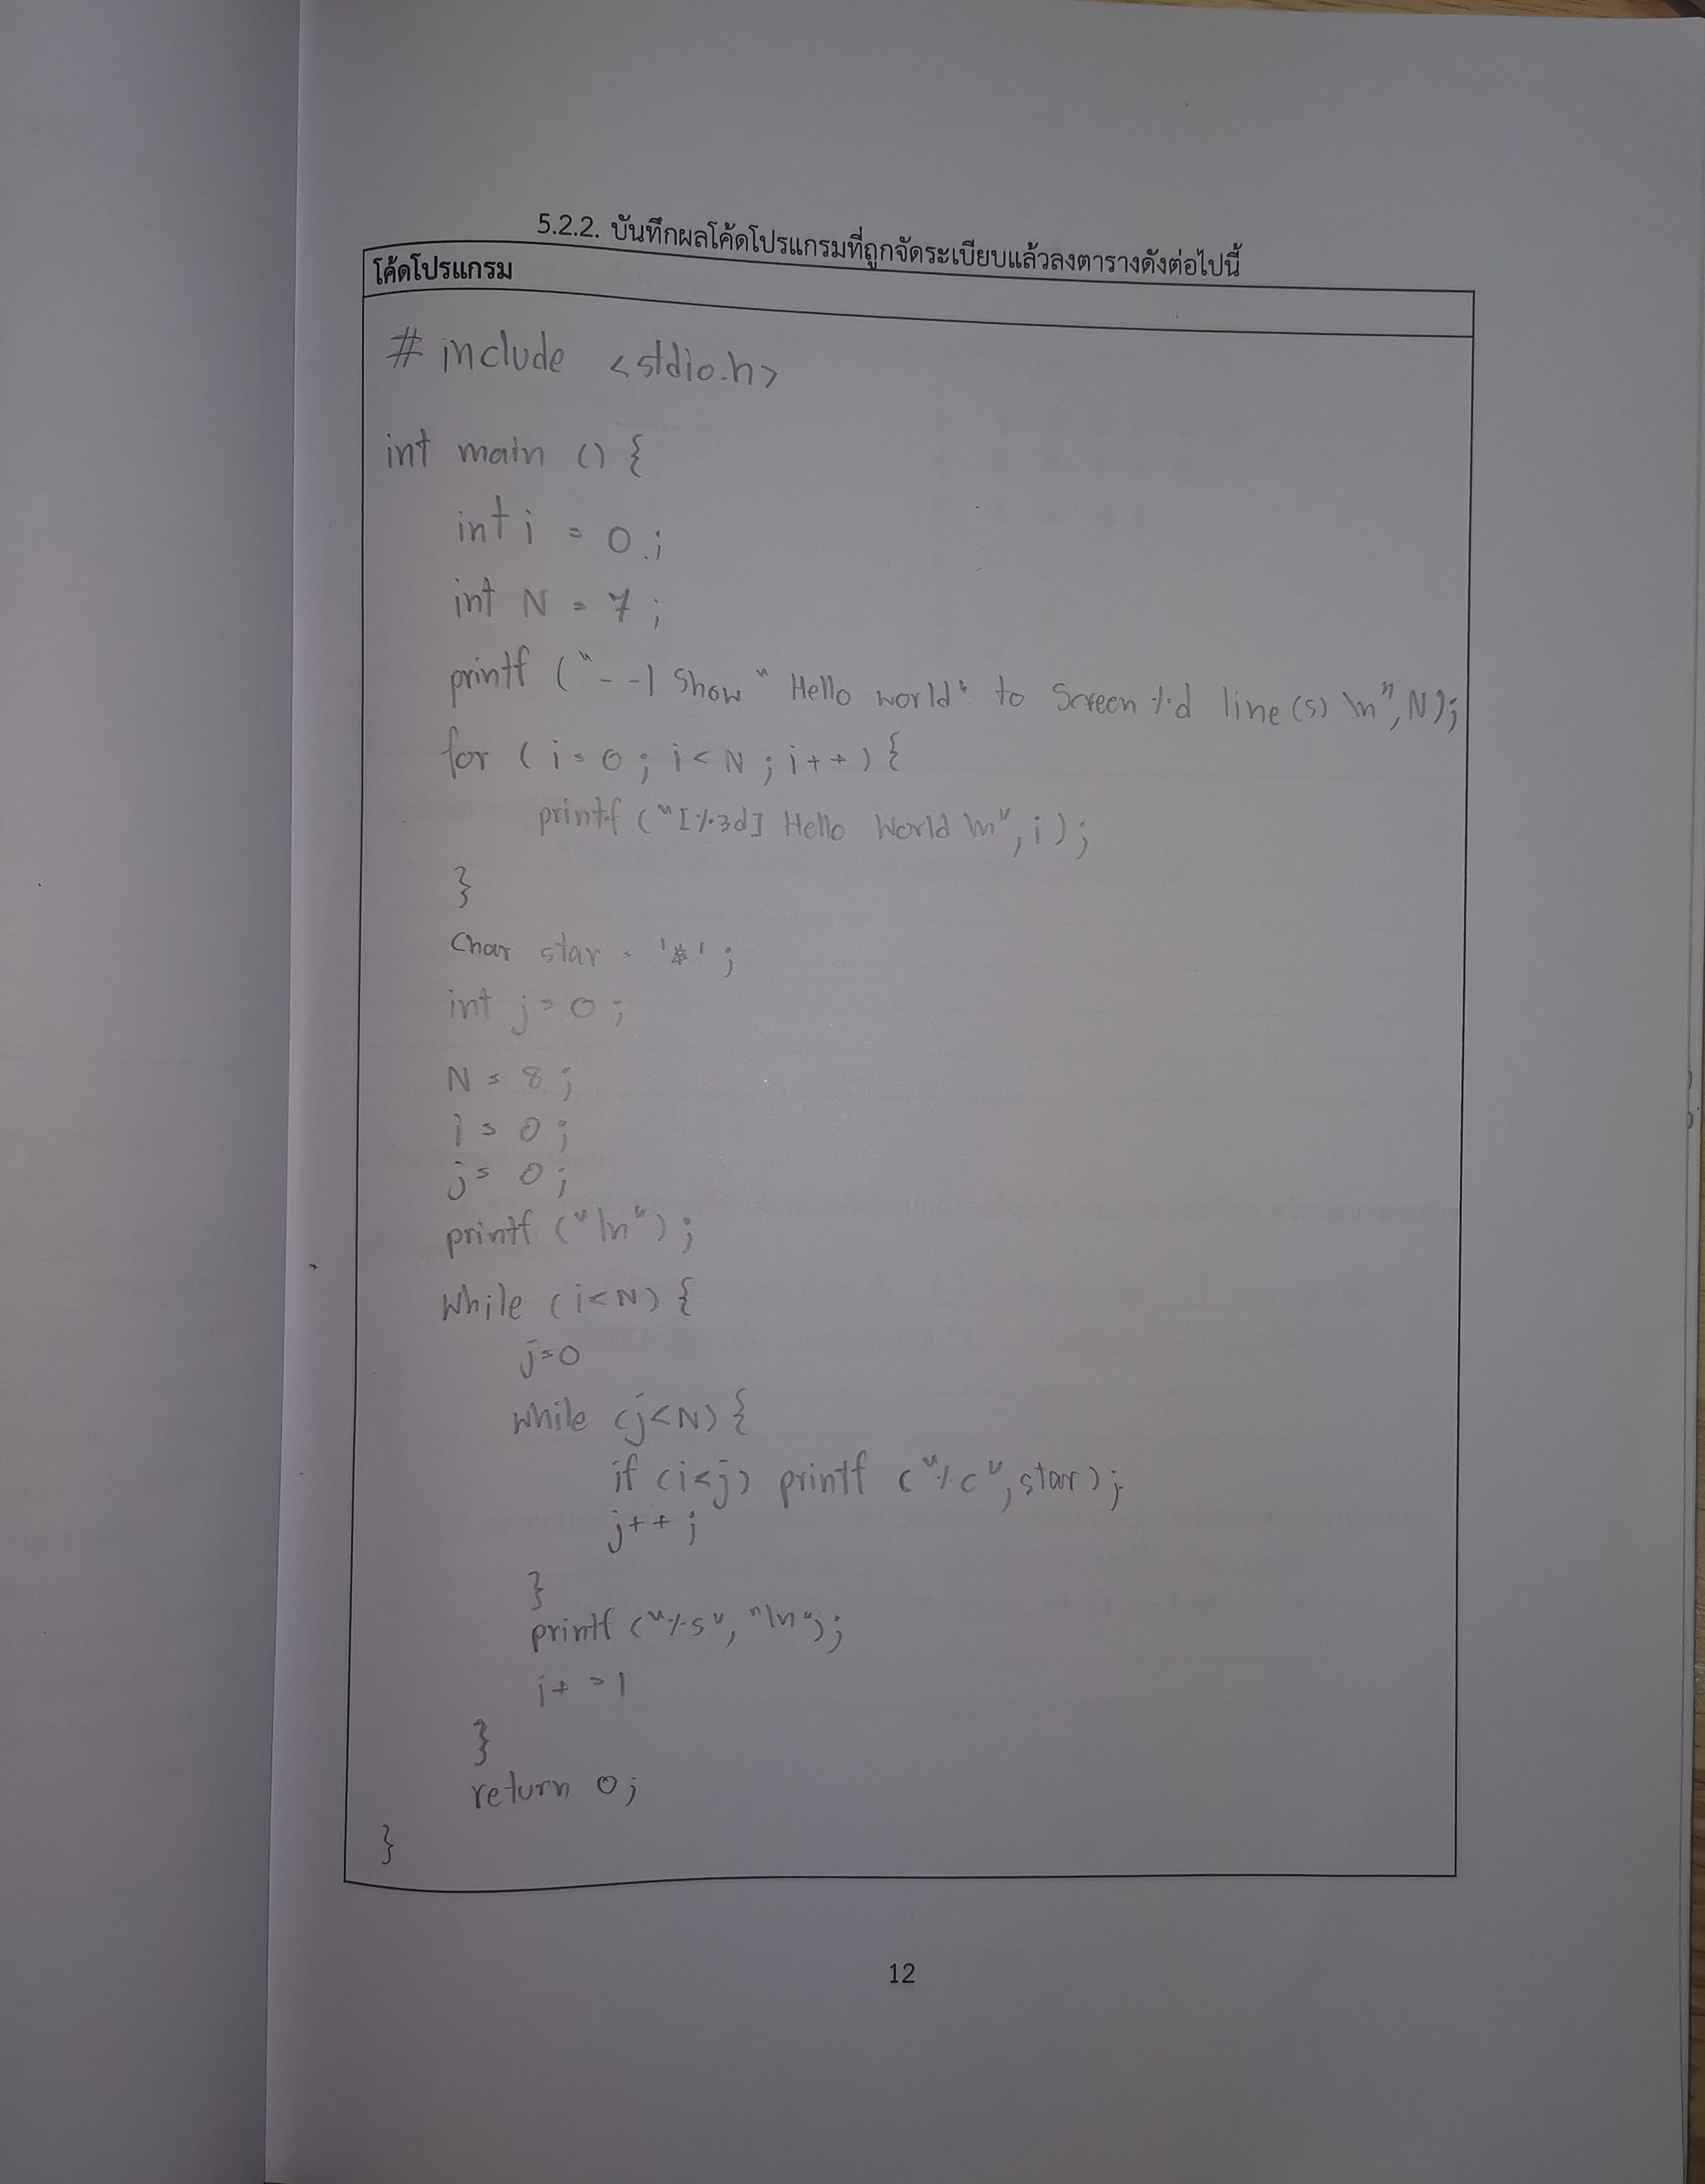 5.2.2. บันทึกผลโค้ดโปรแกรมที่ถูกจัดระเบียบแล้วลงตารางดังต่อไปนี้
โค้ดโปรแกรม
# include <stdio.h>
int main () {
int i = 0 ;
int N = 7 ;
printf ("--| Show " Hello world" to Screen %d line(s) \n", N);
for ( i = 0 ; i < N ; i++ ) {
printf ("[%3d] Hello World \n", i ) ;
}
Char star = '*' ;
int j = 0 ;
N = 8 ;
i = 0 ;
j = 0 ;
printf ("\n") ;
While (i<N) {
j=0
while (j<N) {
if (i<j) printf ("%c", star);
j++ ;
}
printf ("%s", "\n");
i+ =1
}
return 0;
}
12